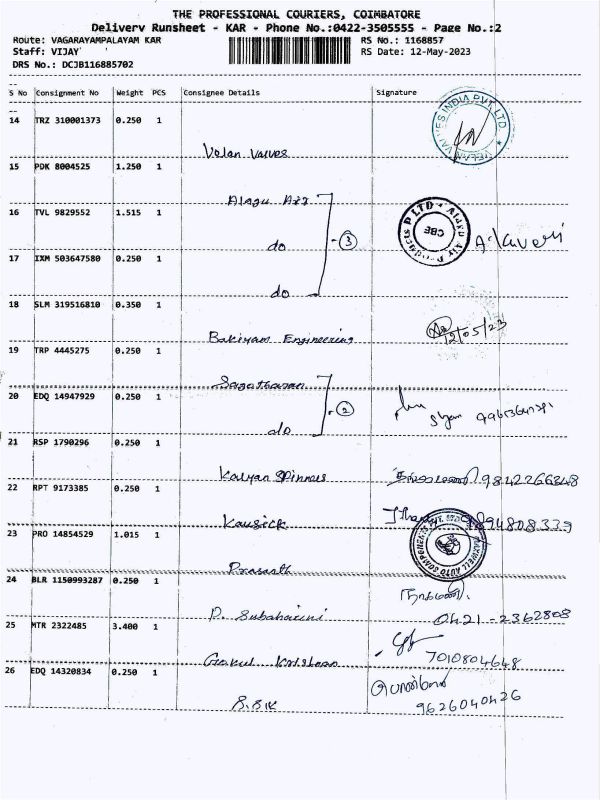 THE PROFESSIONAL COURIERS, COIMBATORE
Delivery Runsheet - KAR - Phone No.:0422-3505555 - Page No.:2
Route: VAGARAYAMPALAYAM KAR RS No.: 1168857
Staff: VIJAY RS Date: 12-May-2023
DRS No.: DCJB116885702
S No Consignment No Weight PCS Consignee Details Signature
14 TRZ 310001373 0.250 1
VELAN VALVES INDIA PVT. LTD.
Velan Valves
15 PDK 8004525 1.250 1
Alagu Air
16 TVL 9829552 1.515 1
do 3
17 IXM 503647580 0.250 1
do
18 SLM 319516810 0.350 1
Bakiyam Engineering 12/05/23
19 TRP 4445275 0.250 1
20 EDQ 14947929 0.250 1
2
do
21 RSP 1790296 0.250 1
Kalyan Spinners 9842266348
22 RPT 9173385 0.250 1
Kausick
23 PRO 14854529 1.015 1
MAXWELL AUTO COMPONENTS PVT. LTD
Prasanth
24 BLR 1150993287 0.250 1
P. Subaharini 0421-2362808
25 MTR 2322485 3.400 1
Gokul Krishnan 7010804648
26 EDQ 14320834 0.250 1
9626040426